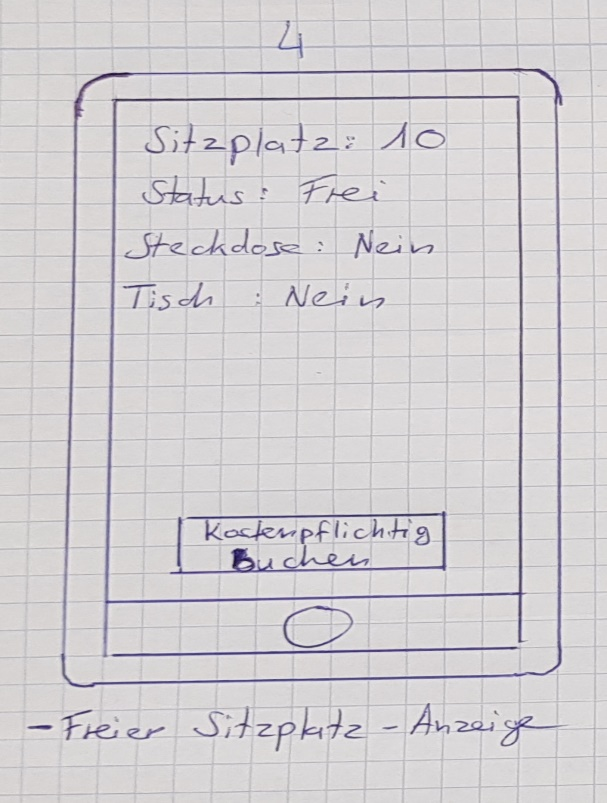 4
Sitzplatz: 10
Status: Frei
Steckdose: Nein
Tisch : Nein
Kostenpflichtig
Buchen
- Freier Sitzplatz - Anzeige